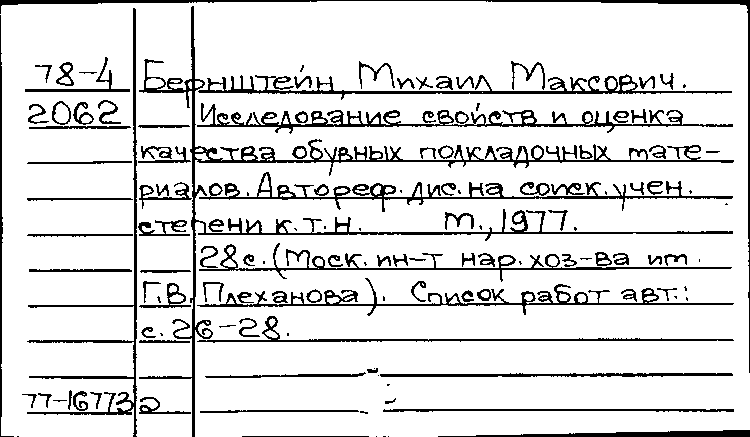 78-4 Бернштейн, Михаил Максович.
2062 Исследование свойств и оценка
качества обувных подкладочных мате-
риалов. Автореф. дис. на соиск. учен.
степени к.т.н. М., 1977.
28с. (Моск. ин-т нар. хоз-ва им.
Г.В. Плеханова). Список работ авт.:
с. 26-28.
77-16773